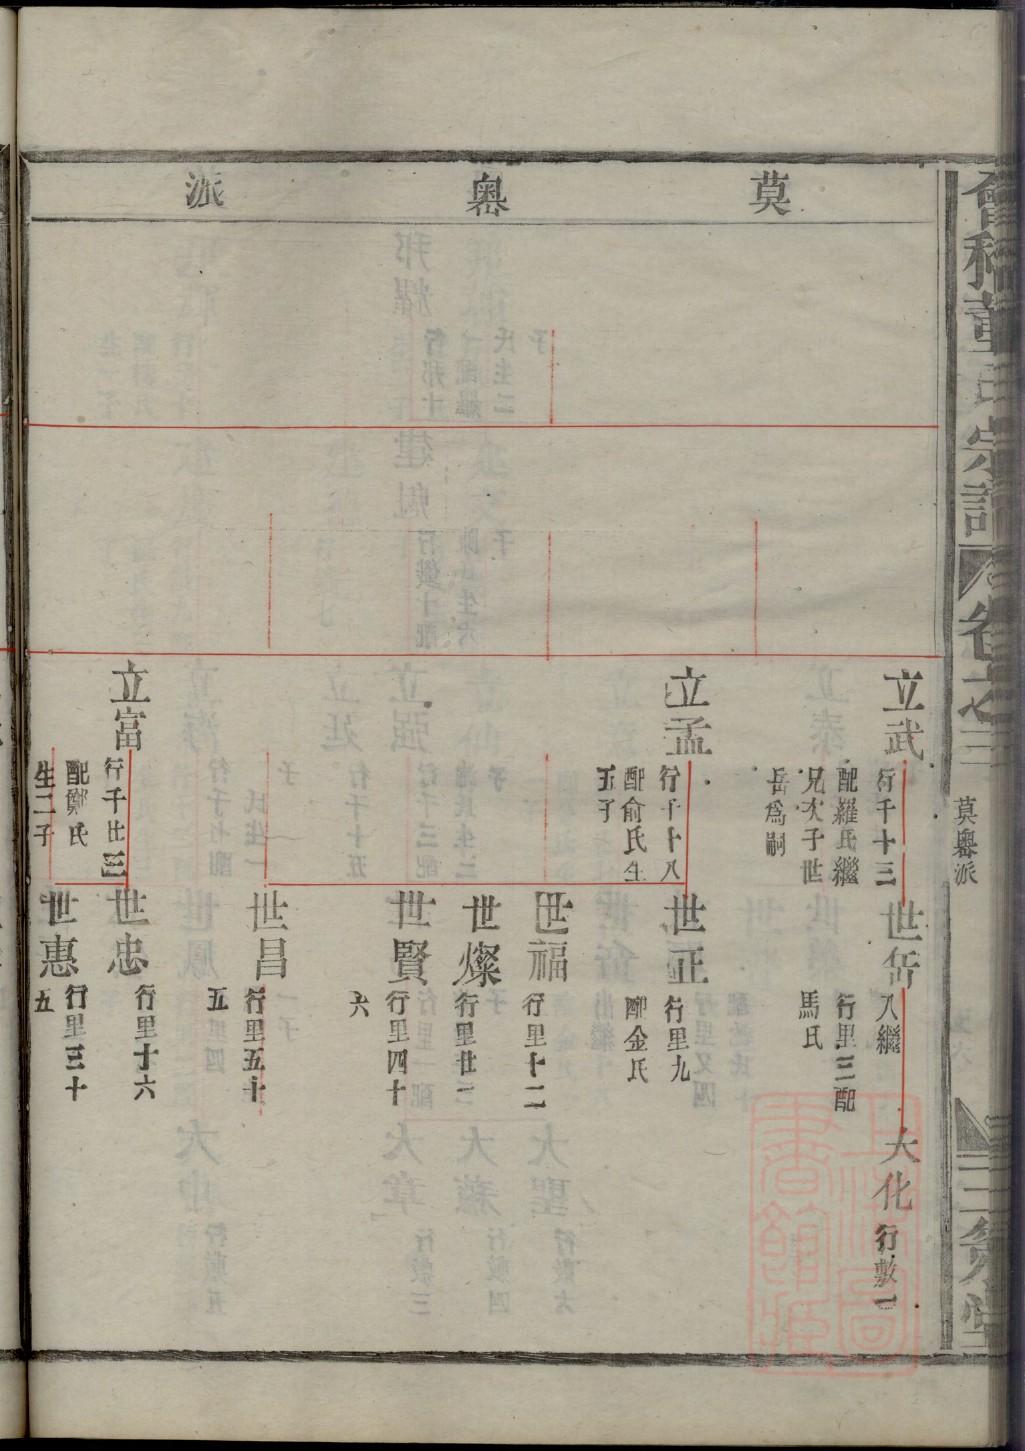 會稽董氏宗譜
卷之三
莫粤派
三策堂
莫粤派
立武
行千十三
配羅氏繼
兄次子世
岳為嗣
世岳
入繼
行里三配
馬氏
大化
行敷一
立孟
行千十八
配俞氏生
五子
世正
行里九
配金氏
世福
行里十二
世燦
行里廿一
世賢
行里四十
六
世昌
行里五十
五
立富
行千廿三
配鄭氏
生二子
世忠
行里十六
世惠
行里三十
五
上海圖
書館藏